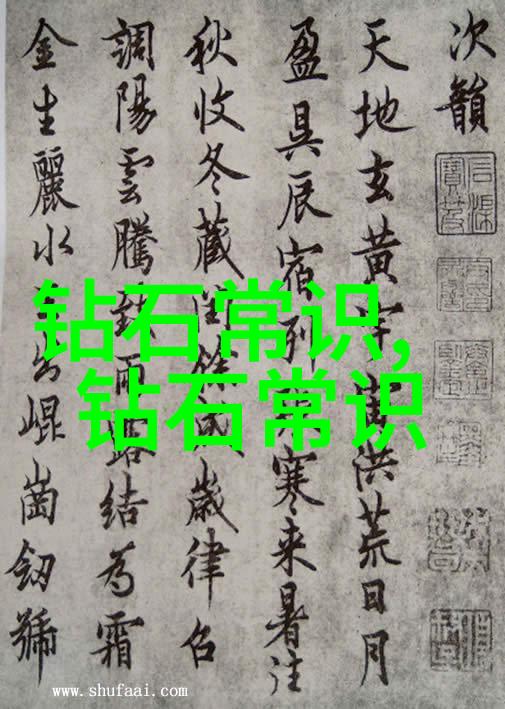 次韻
天地玄黄宇宙洪荒日月
盈昃辰宿列寒来暑往
秋收冬藏閏餘成歲律召
調陽雲騰致雨露結為霜
金生麗水出崐崗劒號
钻石常识,
钻石常识
www.shufaai.com